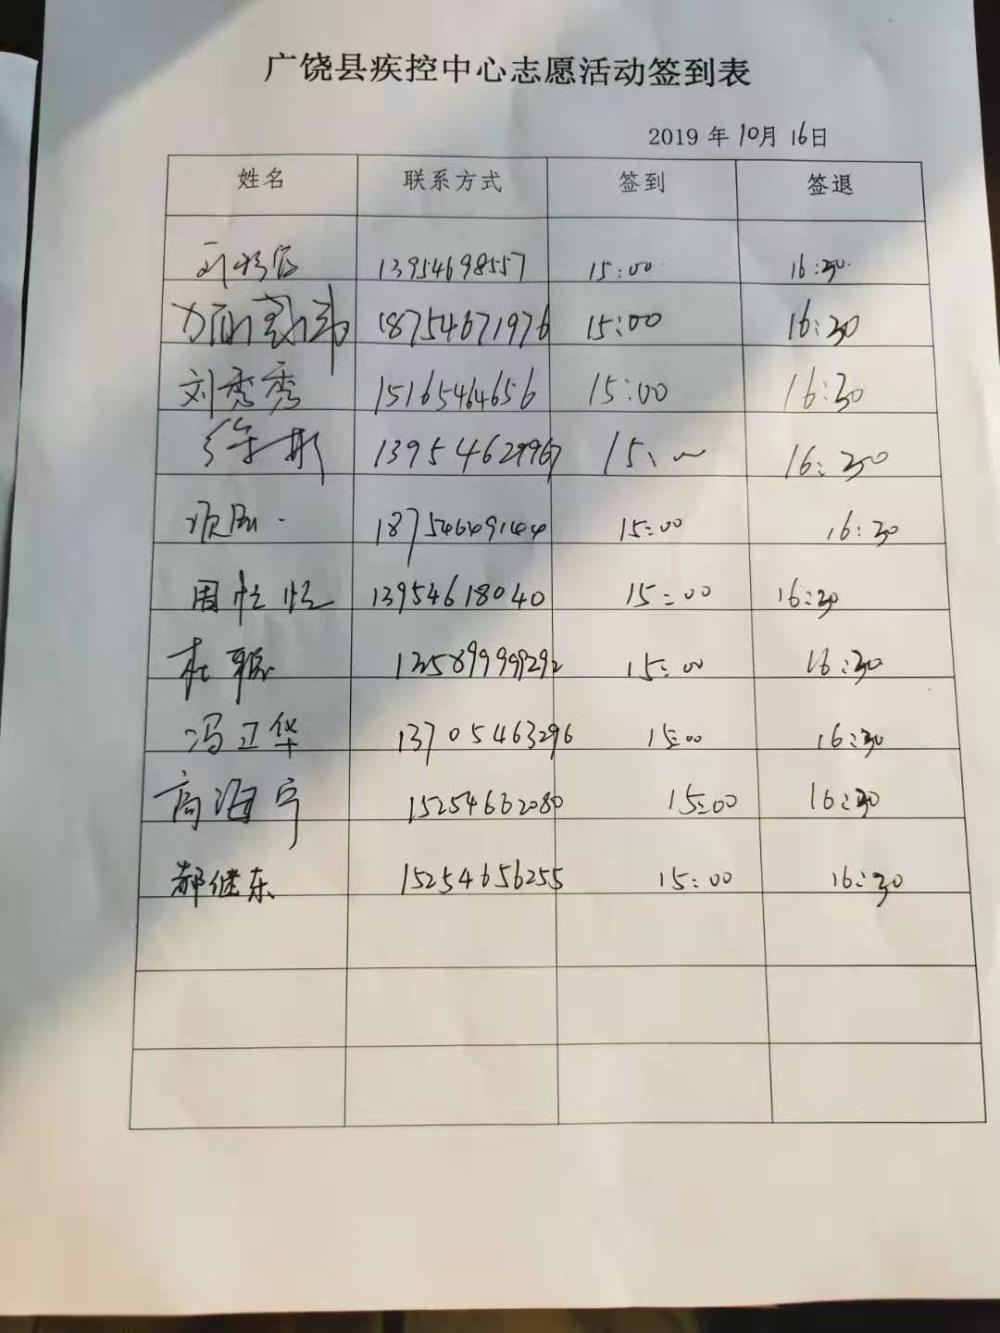 广饶县疾控中心志愿活动签到表
2019 年 10月 16日
姓名 联系方式 签到 签退
13954698557 15:00 16:30
18754671976 15:00 16:30
刘秀秀 15165464656 15:00 16:30
徐彬 13954629967 15:00 16:30
18754649144 15:00 16:30
周忙忙 13954618040 15:00 16:30
杜 15:00 16:30
冯卫华 13705463296 15:00 16:30
高海宁 15254662080 15:00 16:30
郝继东 15254656255 15:00 16:30